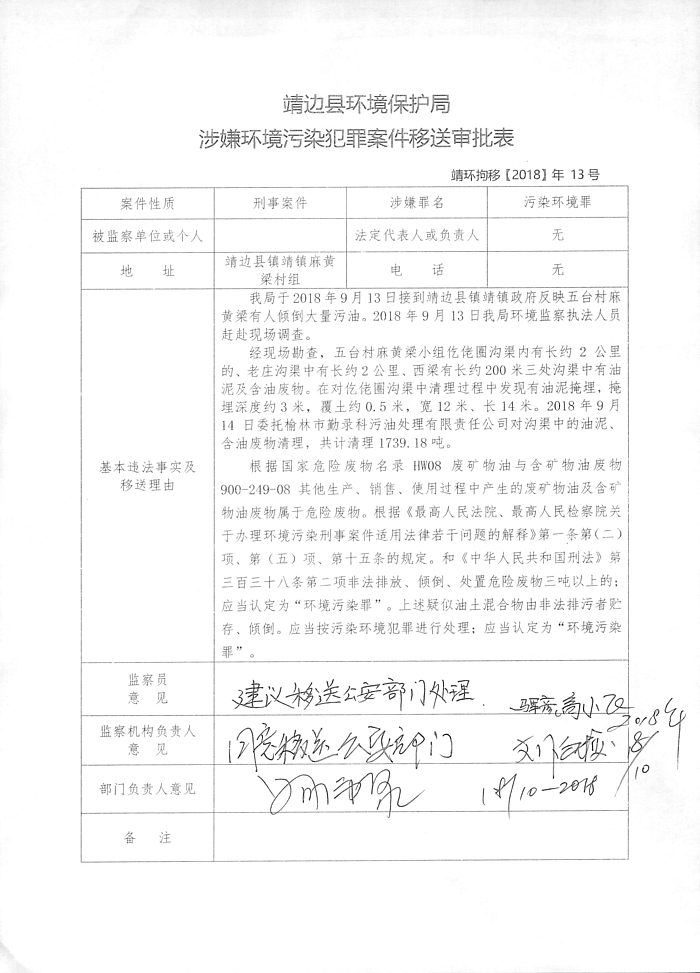 靖边县环境保护局
涉嫌环境污染犯罪案件移送审批表
靖环拘移【2018】年 13号
案件性质 刑事案件 涉嫌罪名 污染环境罪
被监察单位或个人 法定代表人或负责人 无
地 址 靖边县镇靖镇麻黄
梁村组 电 话 无
基本违法事实及
移送理由
我局于2018年9月13日接到靖边县镇靖镇政府反映五台村麻
黄梁有人倾倒大量污油。2018年9月13日我局环境监察执法人员
赶赴现场调查。
经现场勘查，五台村麻黄梁小组仡佬圈沟渠内有长约 2 公里
的、老庄沟渠中有长约2公里、西梁有长约200米三处沟渠中有油
泥及含油废物。在对仡佬圈沟渠中清理过程中发现有油泥掩埋，掩
埋深度约3米，覆土约0.5米，宽12米、长14米。2018年9月
14 日委托榆林市勤录科污油处理有限责任公司对沟渠中的油泥、
含油废物清理，共计清理1739.18吨。
根据国家危险废物名录 HW08 废矿物油与含矿物油废物
900-249-08 其他生产、销售、使用过程中产生的废矿物油及含矿
物油废物属于危险废物。根据《最高人民法院、最高人民检察院关
于办理环境污染刑事案件适用法律若干问题的解释》第一条第（二）
项、第（五）项、第十五条的规定。和《中华人民共和国刑法》第
三百三十八条第二项非法排放、倾倒、处置危险废物三吨以上的；
应当认定为“环境污染罪”。上述疑似油土混合物由非法排污者贮
存、倾倒。应当按污染环境犯罪进行处理；应当认定为“环境污染
罪”。
监察员
意 见
建议移送公安部门处理.
2018年
监察机构负责人
意 见
同意移送公安部门
18/10
部门负责人意见
18/10-2018
备 注